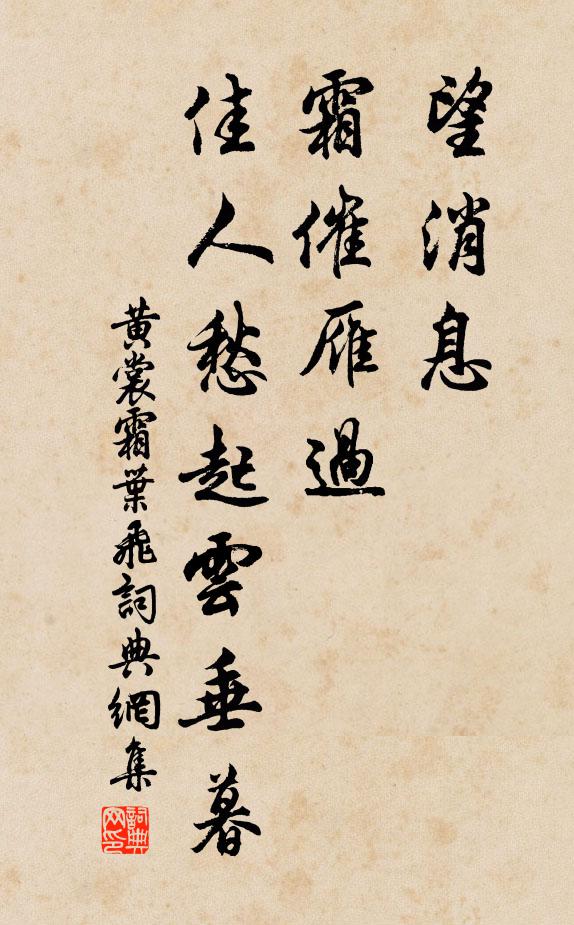 望消息
霜催雁過
佳人愁起雲垂暮
黃裳霜葉飛詞典網集
詞典網印